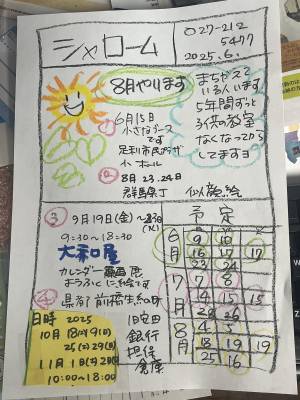 シャローム
027-212
5477
2025.6.
8月やります
まちがえて
いる人います
5年間ずっと
子供教室
なくなってから
してますヨ
① 6月15日
小さなブース
です
足利市民プラザ
小ホール
② 8月23.24日
群馬県庁 似顔絵
③ 9月19日(金)~23日
(火)
9:30~18:30
大和屋
カレンダー原画展
ようふくに絵です
④ 県庁前橋まちなか
日時 2025
10月18(土)19(日)
25(土)26(日)
11月1(土)2(日)
10:00~18:00
旧安田
銀行
担保
倉庫
予定
6月 9 10
16 17 17
23 24
7月 7 8
14 15 15
28
8月 4 5
18 19 19
25 16